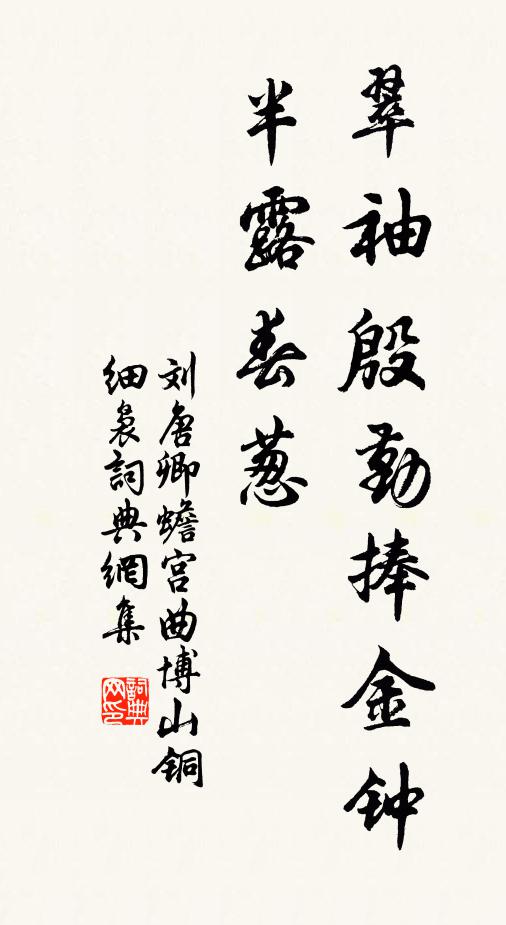 翠袖殷勤捧金钟
半露春葱
刘唐卿蟾宫曲博山铜
细袅詞典網集
詞典
网印